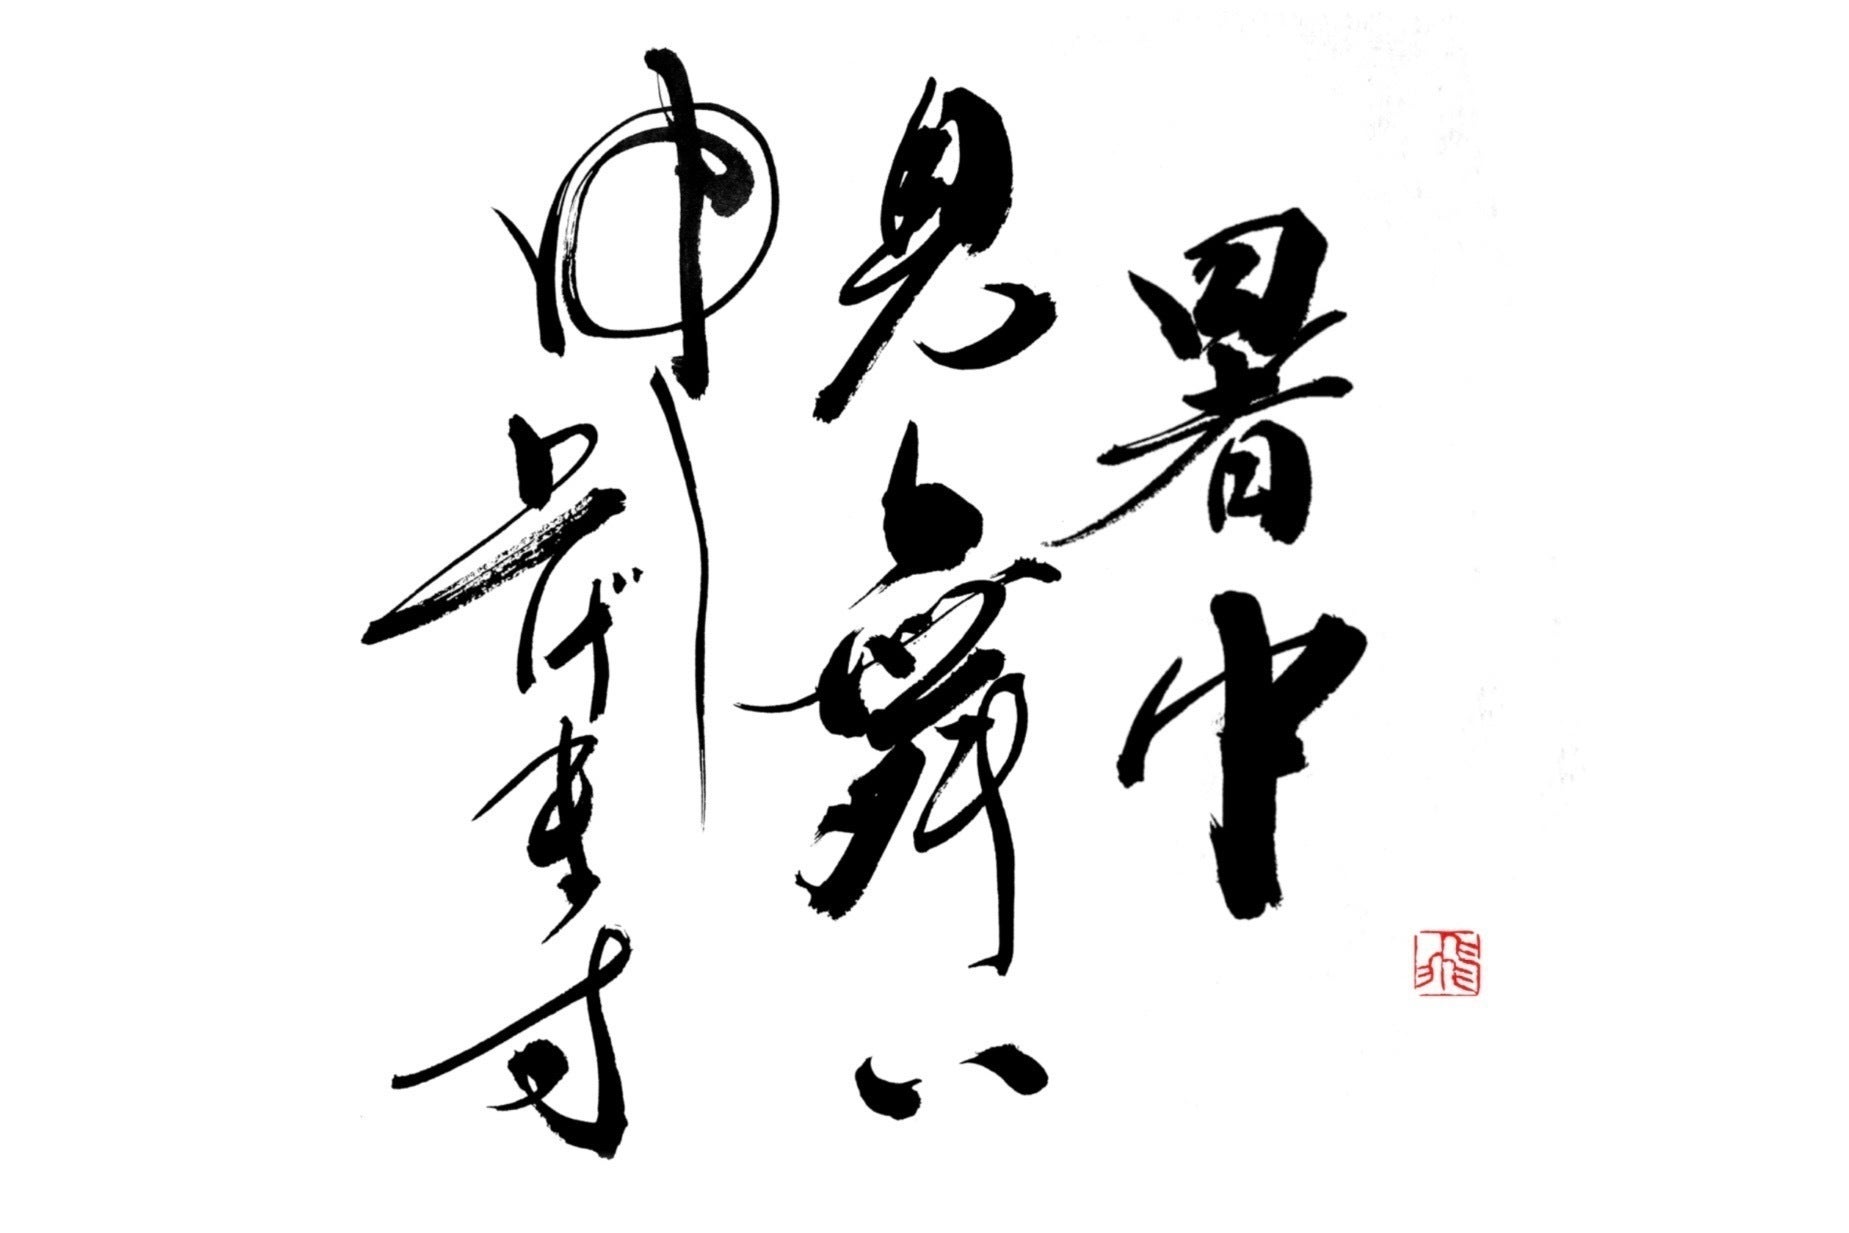 暑中
見舞い
申し上げます